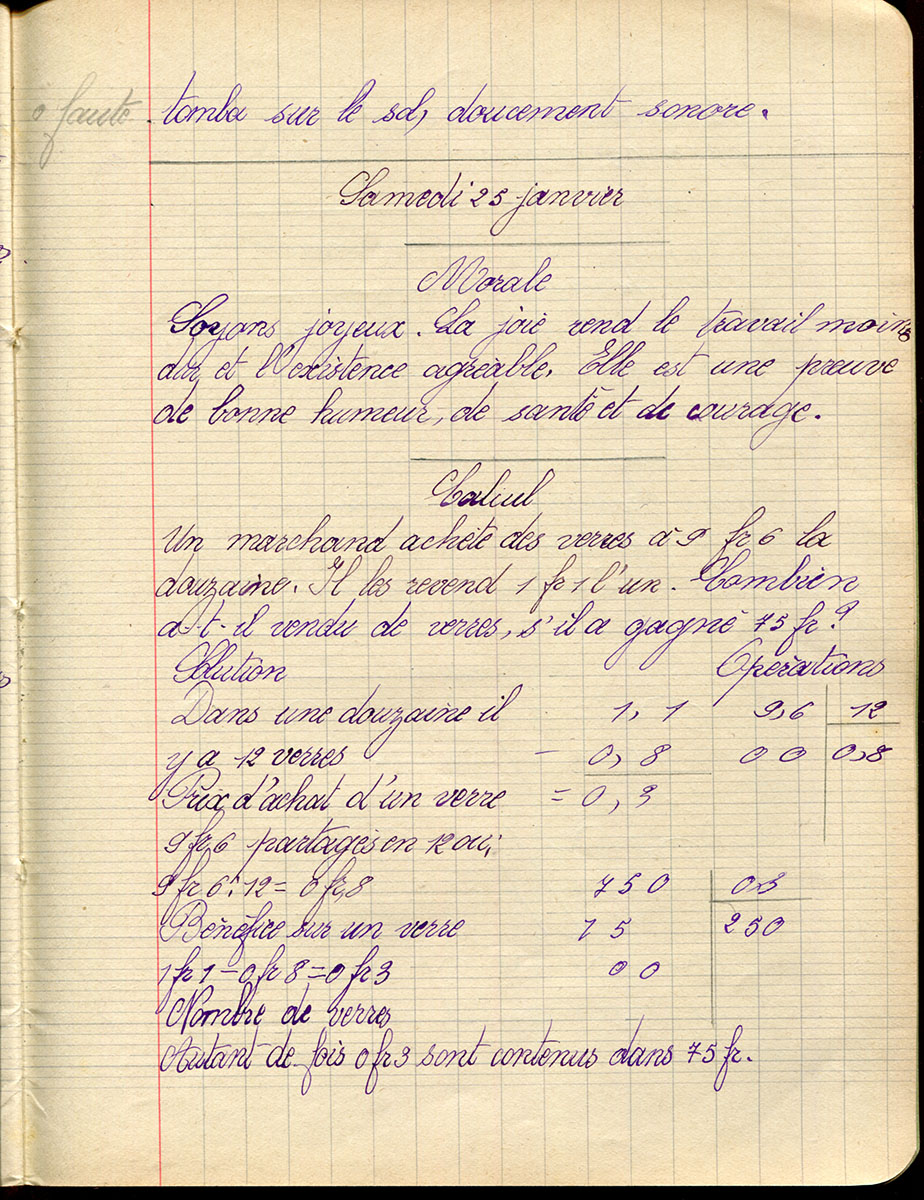 0 faute
tomba sur le sol, doucement sonore.
Samedi 25 janvier
Morale
Soyons joyeux. La joie rend le travail moins
dur et l'existence agréable. Elle est une preuve
de bonne humeur, de santé et de courage.
Calcul
Un marchand achète des verres à 9 fr 6 la
douzaine. Il les revend 1 fr 1 l'un. Combien
a-t-il vendu de verres, s'il a gagné 75 fr ?
Solution Opérations
Dans une douzaine il 1,1 9,6 12
y a 12 verres - 0,8 00 0,8
Prix d'achat d'un verre = 0,3
9 fr 6 partagés en 12 ou,
9 fr 6 : 12 = 0 fr,8 750 0,3
Bénéfice sur un verre 15 250
1 fr 1 - 0 fr 8 = 0 fr 3 00
Nombre de verres
Autant de fois 0 fr 3 sont contenus dans 75 fr.